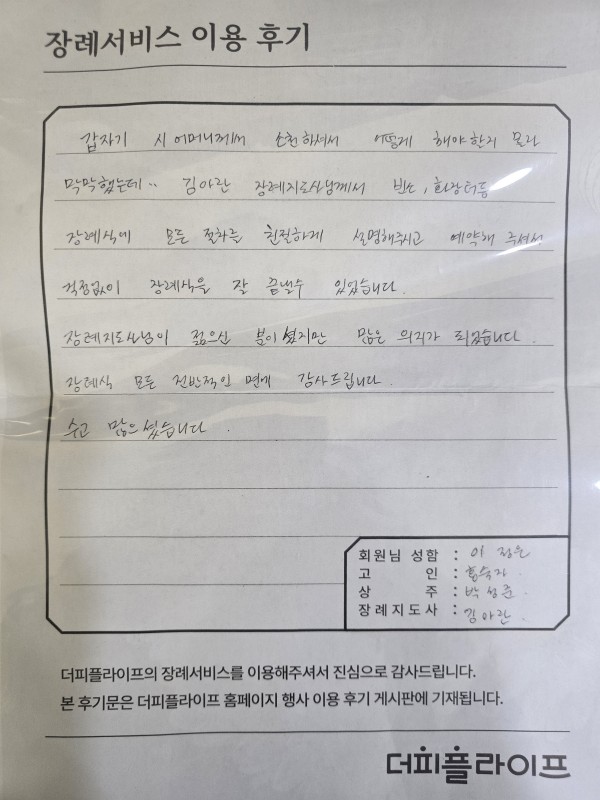 장례서비스 이용 후기
갑자기 시어머니께서 소천하셔서 어떻게 해야할지 몰라
막막했는데.. 김아란 장례지도사님께서 빈소, 화장터등
장례식에 모든 절차를 친절하게 설명해주시고 예약해 주셔서
걱정없이 장례식을 잘 끝낼수 있었습니다.
장례지도사님이 젊으신 분이셨지만 많은 의지가 되었습니다.
장례식 모든 전반적인 면에 감사드립니다.
수고 많으셨습니다.
회원님 성함 : 이정은
고 인 : 홍숙자.
상 주 : 박성준.
장례지도사 : 김아란.
더피플라이프의 장례서비스를 이용해주셔서 진심으로 감사드립니다.
본 후기문은 더피플라이프 홈페이지 행사 이용 후기 게시판에 기재됩니다.
더피플라이프